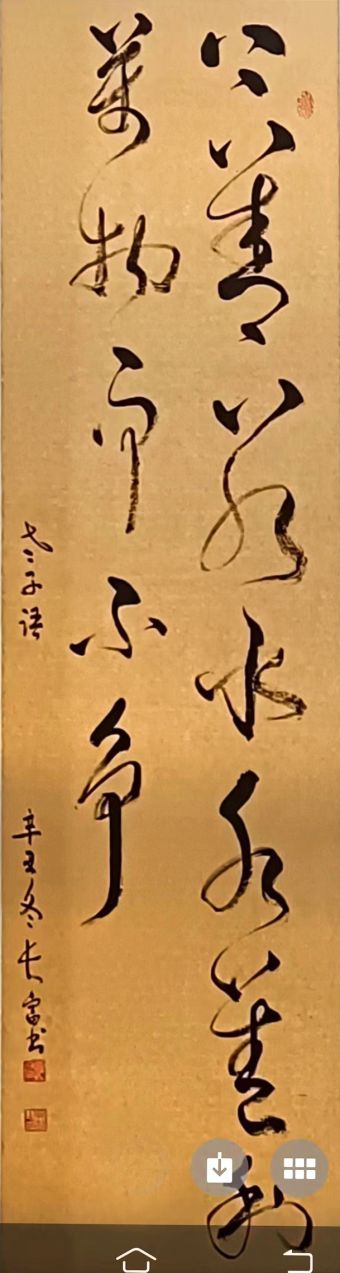 上善若水水善利
萬物而不争
老子語
辛丑冬長富书